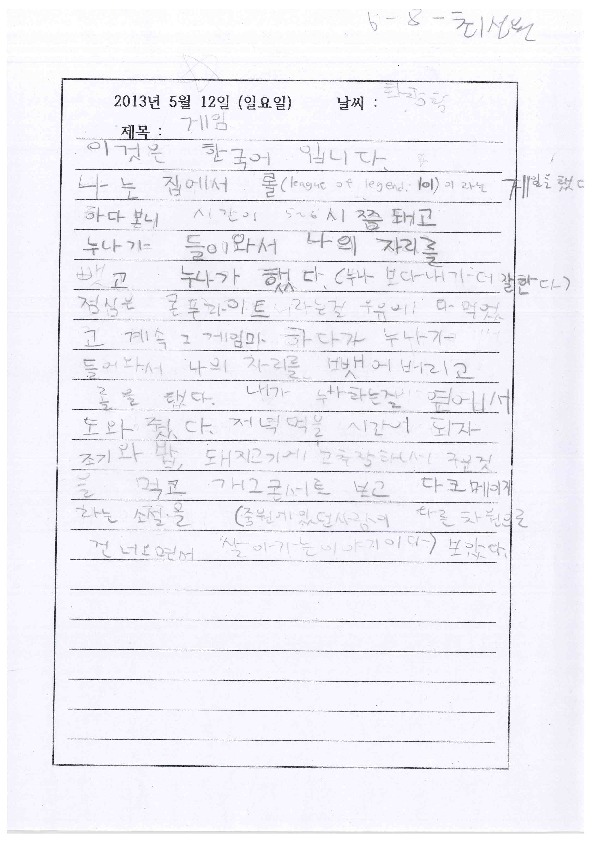 6-8-최시원
2013년 5월 12일 (일요일) 날씨 :
제목 : 게임
이것은 한국어 입니다.
나는 집에서 롤(league of legend, lol)이라는 게임을 했다
하다 보니 시간이 5~6시 쯤 돼고
누나가 들어와서 나의 자리를
뺏고 누나가 했다. (누나 보다 내가 더 잘한다.)
점심은 콘푸라이트 라는걸 우유에 다 먹었
고 계속 그 게임만 하다가 누나가
들어와서 나의 자리를 뺏어버리고
롤을 했다. 내가 누나하는걸 옆에서
도와 줬다. 저녁먹을 시간이 되자
조기와 밥, 돼지고기에 구운것
을 먹고 개그콘서트 보고 다크메이지
라는 소설을 (중원에있던사람이 다른 차원으로
건너오면서 살아가는이야기이다) 보았다.